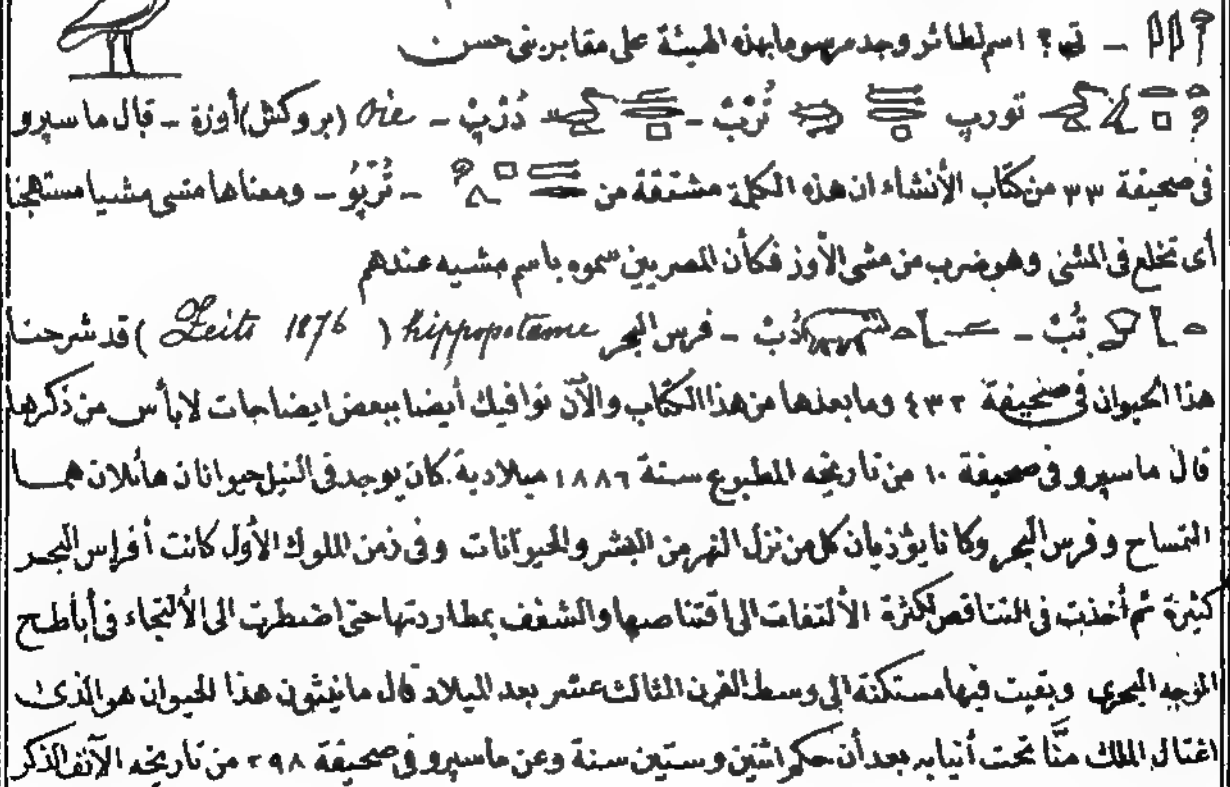 – تى؟ اسم لطائر وجد مرسوما بهذه الهيئة على مقابر بنى حسن
تورب تُربْ – دُرْبْ – Oie (بروكش) أوزة – قال ماسبرو
فى صحيفة ٣٣ من كتاب الأنشاء ان هذه الكلمة مشتقة من – تُرْپُو – ومعناها مشى مشيا مستهجنا
أى تخلع فى المشى وهو ضرب من مشى الأوز فكأن المصريين سموه باسم مشيه عندهم
تُبْ – دُبْ – فرس البحر hippopotame ( Zeits 1876 ) قد شرحنا
هذا الحيوان فى صحيفة ٤٣٢ وما بعدها من هذا الكتاب والآن نوافيك أيضا ببعض ايضاحات لابأس من ذكرها
قال ماسبرو فى صحيفة ١٠ من تاريخه المطبوع سنة ١٨٨٦ ميلادية كان يوجد فى النيل حيوانان هائلان هما
التمساح وفرس البحر وكانا يؤذيان كل من نزل النهر من البشر والحيوانات وفى زمن الملوك الأول كانت أفراس البحر
كثيرة ثم أخذت فى التناقص لكثرة الألتفات الى اقتناصها والشغف بمطاردتها حتى اضطرت الى الألتجاء فى أباطح
الوجه البحرى وبقيت فيها مستكنة الى وسط القرن الثالث عشر بعد الميلاد قال مانيثون هذا الحيوان هو الذى
اغتال الملك منّا تحت أنيابه بعد أن حكم اثنين وستين سنة وعن ماسبرو فى صحيفة ٢٩٨ من تاريخه الآنف الذكر